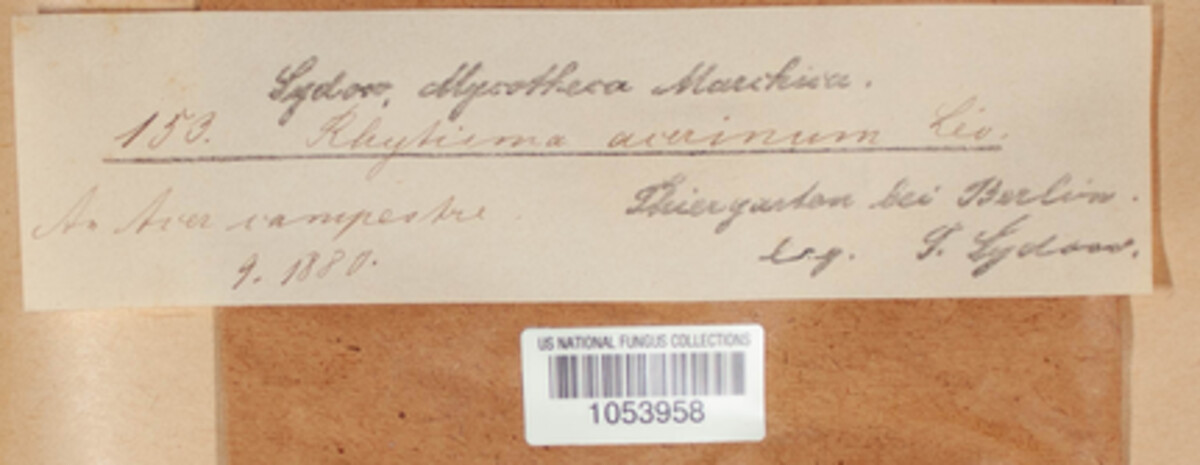 Sydow, Mycotheca Marchica.
153. Rhytisma acerinum Lév.
An Acer campestre.
9. 1880.
Thiergarten bei Berlin.
leg. P. Sydow.
US NATIONAL FUNGUS COLLECTIONS
1053958